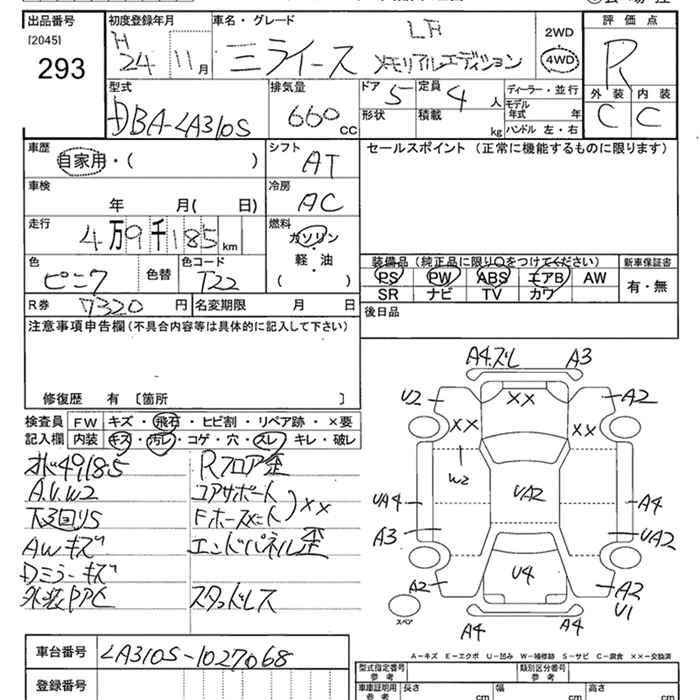 出品番号 初度登録年月 車名・グレード 2WD 評価点
[2045] H 24 11月 ミライース メモリアルエディション 4WD R
293
型式 排気量 ドア 5 定員 4人 ディーラー・並行 外装 内装
DBA-LA310S 660 cc 形状 積載 kg モデル年式 年 C C
ハンドル 左・右
車歴 シフト セールスポイント (正常に機能するものに限ります)
自家用・( ) AT
車検 冷房
年 月( 日) AC
走行 燃料
4万9千185km ガソリン・軽・油
色 色替 色コード ( )
ピンク T22
装備品 (純正品に限り○をつけてください) 新車保証書
PS PW ABS エアB AW 有・無
SR ナビ TV カワ
R券 7320円 名変期限 月 日 後日品
注意事項申告欄(不具合内容等は具体的に記入して下さい)
修復歴 有 〔箇所 〕
検査員記入欄 FW キズ・飛石・ヒビ割・リペア跡・×要
内装 キズ・汚レ・コゲ・穴・スレ・キレ・破レ
49185 Rフロア歪
A.U.W2 コアサポート
下3回りS ××
AWキズ エンドパネル歪
Dミラーキズ
外装PPC スタッドレス
A4.ズレ A3
U2 ×× A2
×× ××
W2
UA4 UA2 A4
A3 UA2
A2 U4 A2
U1
スペア A4 A4
A-キズ E-エクボ U-凹み W-補修跡 S-サビ C-腐食 ××-交換済
車台番号 LA310S-1027068
登録番号
型式指定番号 参考 類別区分番号 参考
車庫証明用 参考 長さ cm 幅 cm 高さ cm